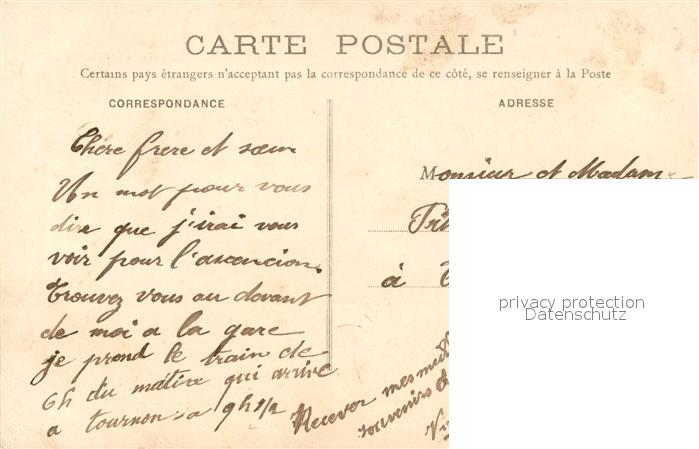 CARTE POSTALE
Certains pays étrangers n'acceptant pas la correspondance de ce côté, se renseigner à la Poste
CORRESPONDANCE
Chère frere et sœur
Un mot pour vous
dire que j'irai vous
voir pour l'ascencion.
Trouvez vous au devant
de moi a la gare
je prend le train de
6h du matin qui arrive
a tournon sa 9h 1/2
ADRESSE
Monsieur et Madame
à
Recever mes meill
souvenirs de
privacy protection
Datenschutz